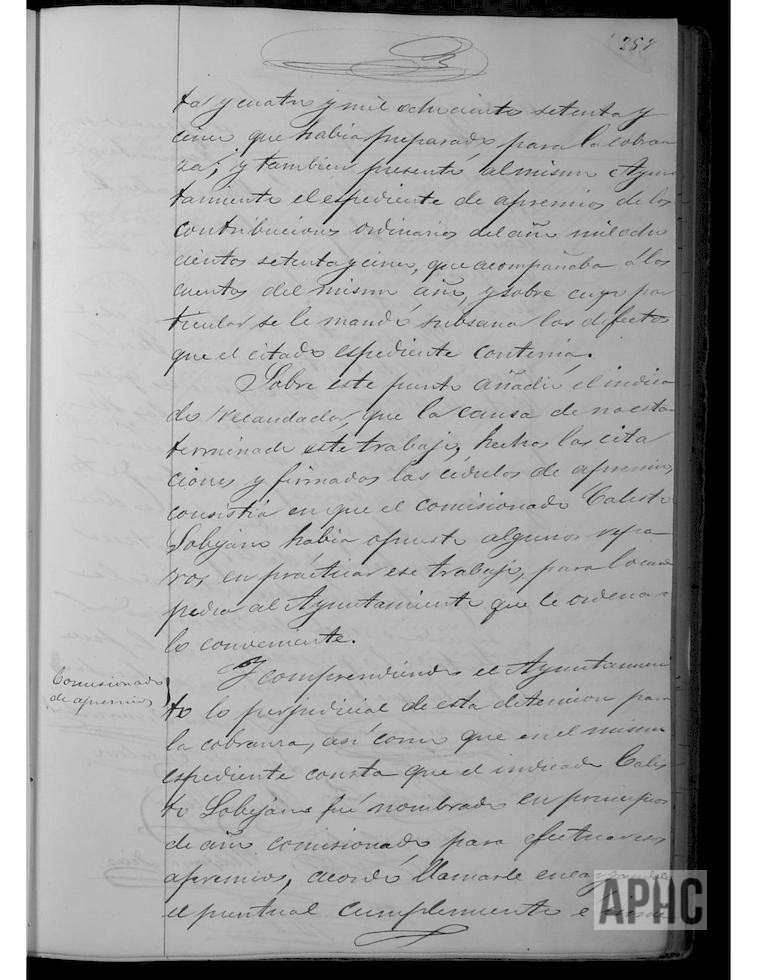 287
tos y cuatro y mil ochociento setenta y
cinco que habia preparado para la cobran
za; y tambien presentó al mismo Ayun
tamiento el espediente de apremios de las
contribuciones ordinarias del año mil ocho
cientos setenta y cinco, que acompañaba á las
cuentas del mismo año, y sobre cuyo par
ticular se le mandó subsanar los defectos
que el citado espediente contenia.
Sobre este punto añadió el indica
do Recaudador, que la causa de no estar
terminado este trabajo, hechas las cita
ciones y firmadas las cédulas de apremios,
consistia en que el comisionado Calisto
Sobejano habia opuesto algunos repa
ros en prácticar ese trabajo, para lo cual
pedia al Ayuntamiento que le ordenara
lo conveniente.
Comisionado
de apremios
Y comprendiendo el Ayuntamien
to lo perjudicial de esta detencion para
la cobranza, así como que en el mismo
espediente consta que el indicado Calis
to Sobejano fué nombrado en principios
de año comisionado para efectuar esos
apremios, acordó llamarle encargandole
el puntual cumplimiento
APHC